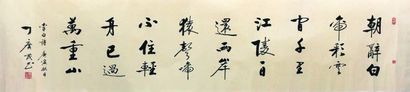 朝辭白
帝彩雲
間千里
江陵一日
還兩岸
猿聲啼
不住輕
舟已過
萬重山
李白詩